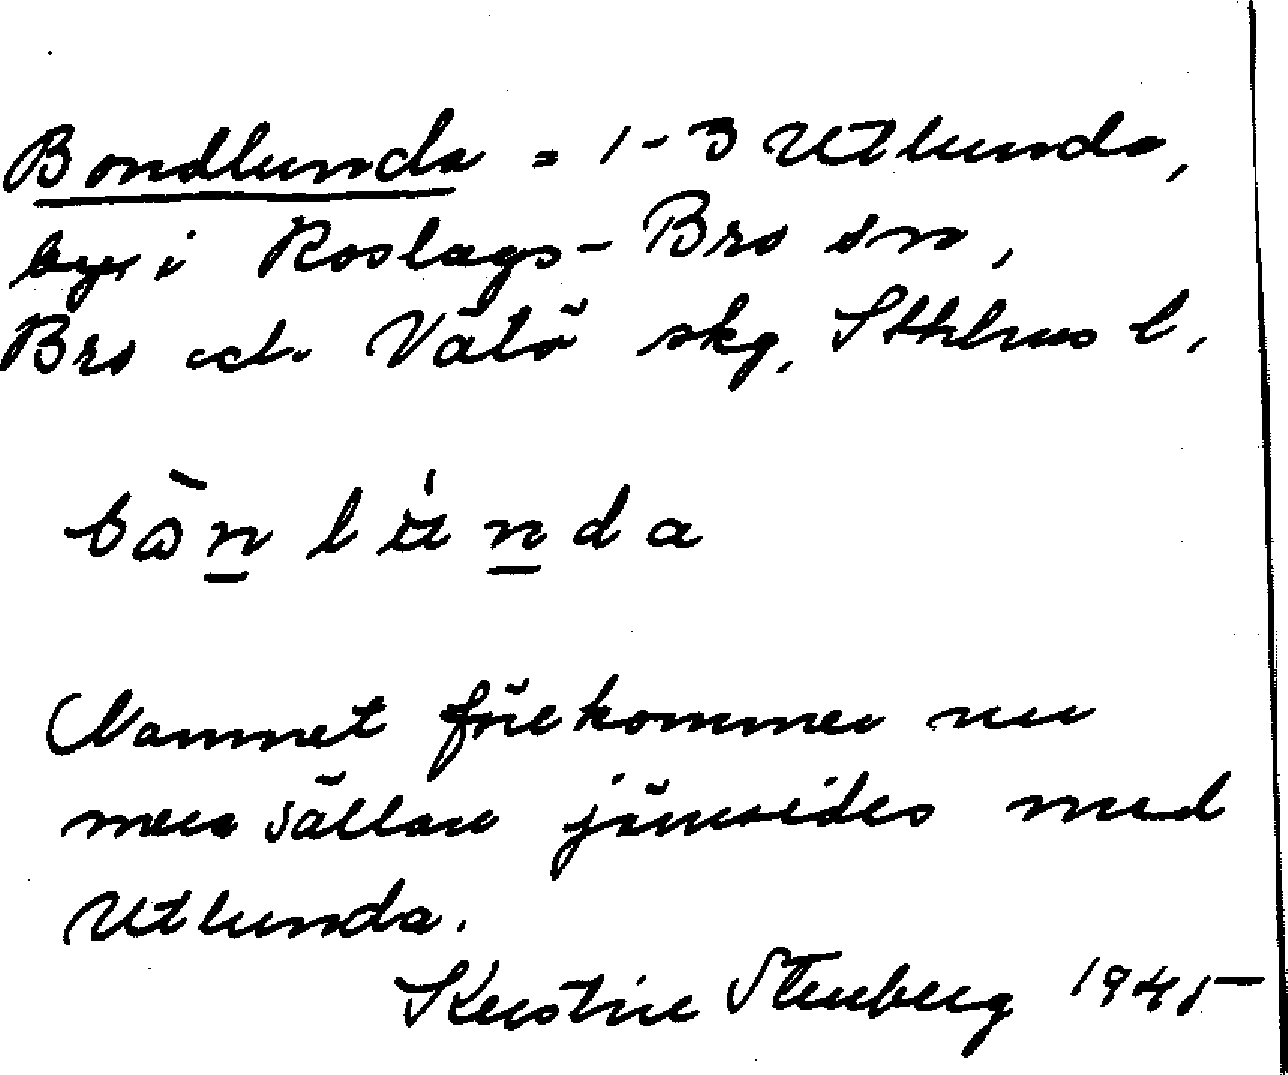 Bondlunda = 1-3 Utlunda,
byar i Roslags-Bro sn,
Bro och Vätö skg, Sthlms l.
bòn lu̇nda
Namnet förekommer nu
mera sällan jämsides med
Utlunda.
Kerstin Stenberg 1945